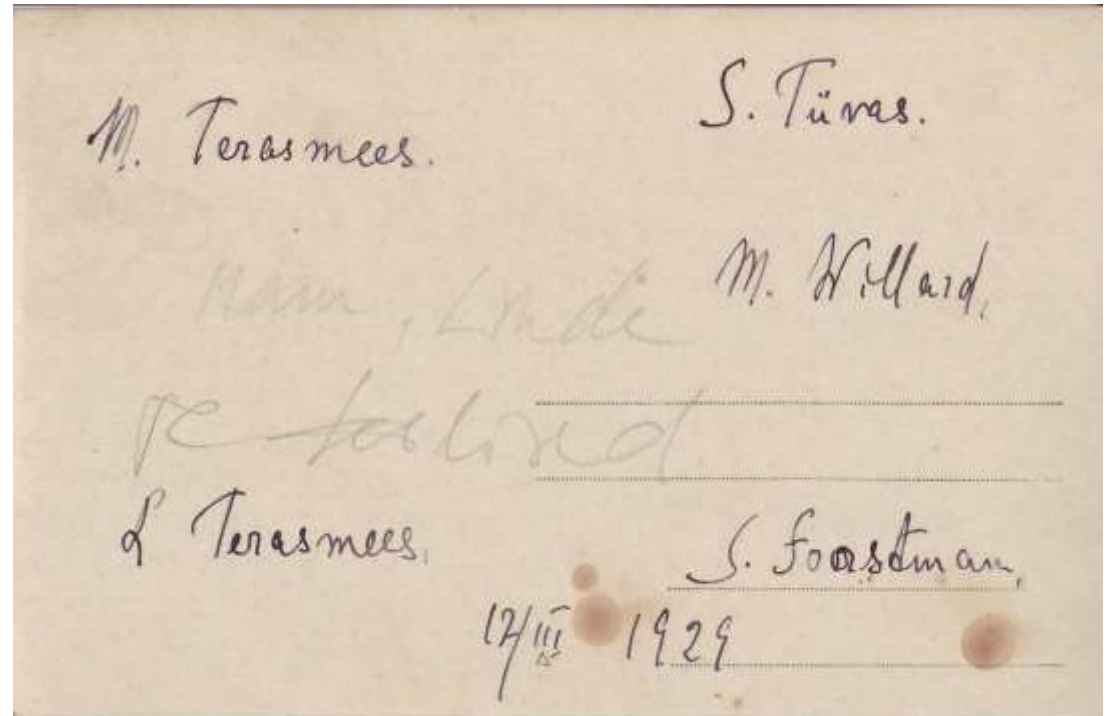 M. Terasmees.
S. Tüvas.
M. Willard.
Mam, Linde
L Terasmees.
S. Foorstman.
12/III 1929